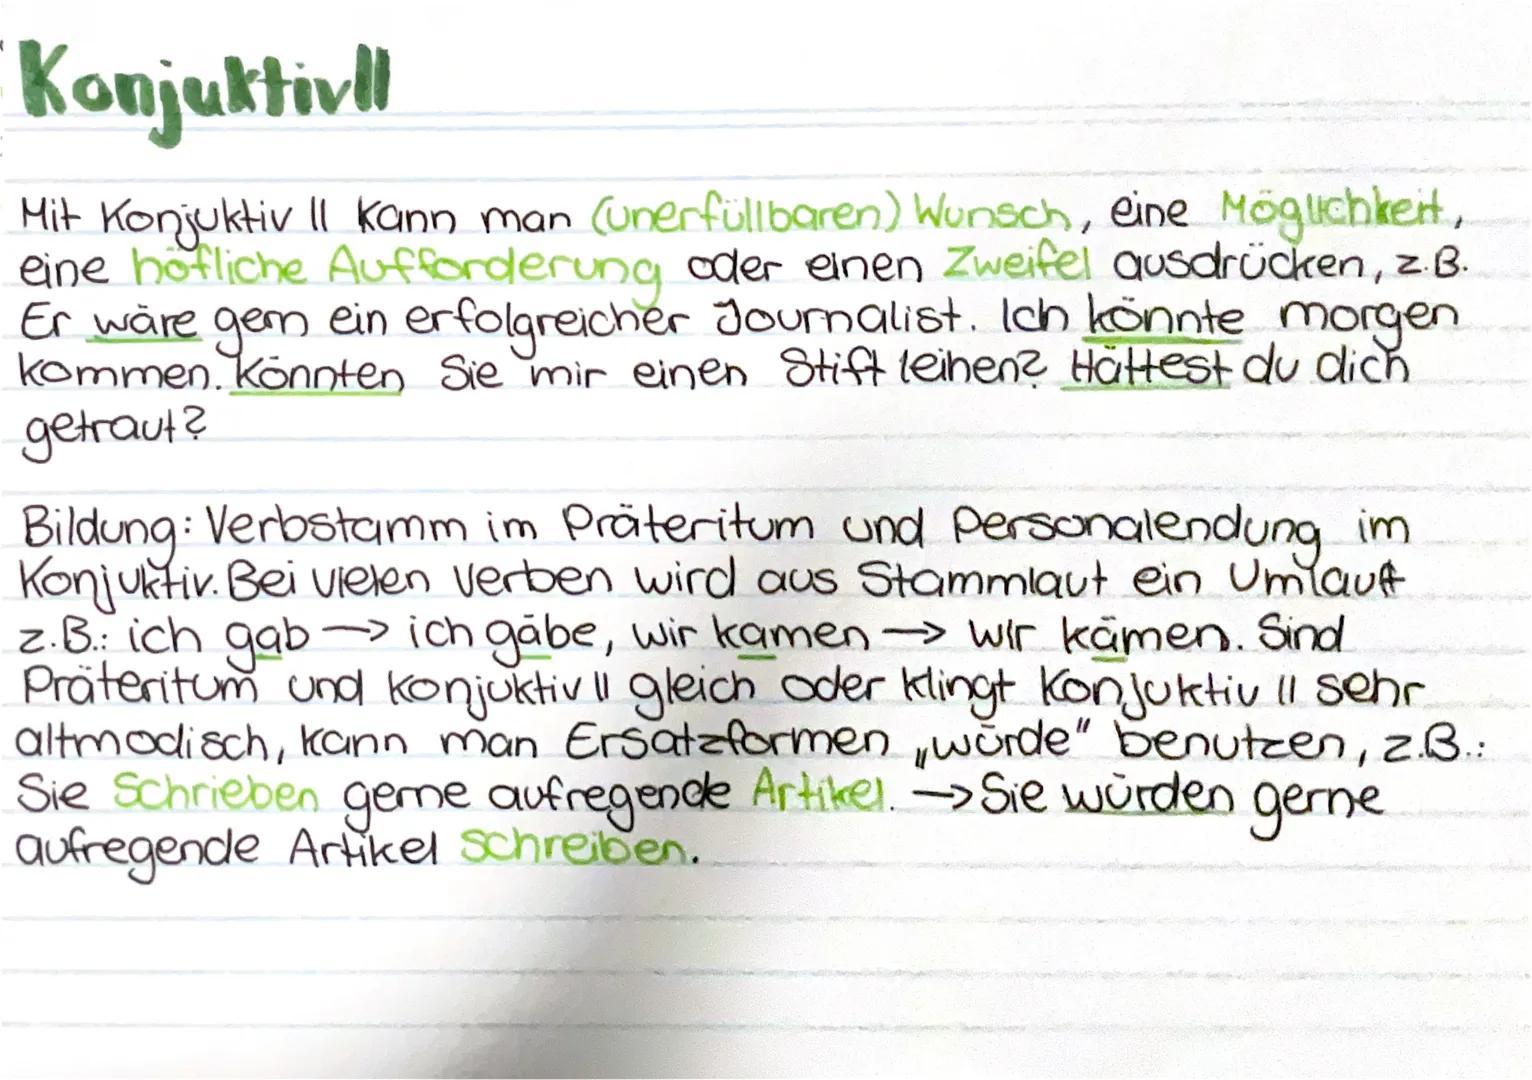 KonjuktivII
Mit Konjuktiv II kann man (unerfüllbaren) Wunsch, eine Möglichkeit,
eine höfliche Aufforderung oder einen Zweifel ausdrücken, z.B.
Er wäre gern ein erfolgreicher Journalist. Ich könnte morgen
kommen. Könnten Sie mir einen Stift leihen? Hättest du dich
getraut?
Bildung: Verbstamm im Präteritum und Personalendung im
Konjuktiv. Bei vielen Verben wird aus Stammlaut ein Umlaut
z.B.: ich gab → ich gäbe, wir kamen → wir kämen. Sind
Präteritum und Konjuktiv II gleich oder klingt Konjuktiv II sehr
altmodisch, kann man Ersatzformen „würde" benutzen, z.B.:
Sie Schrieben gerne aufregende Artikel. → Sie würden gerne
aufregende Artikel schreiben.